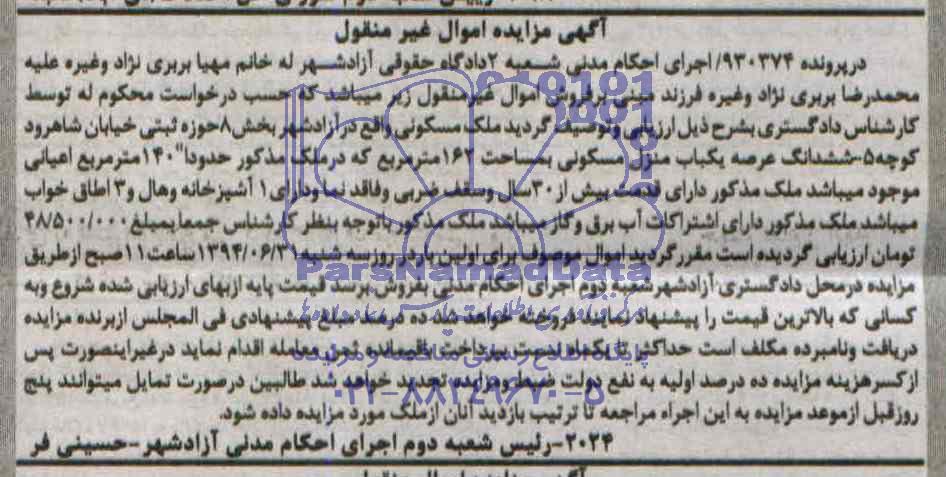 آگهی مزایده اموال غیر منقول
درپرونده ۹۳۰۳۷۴/ اجرای احکام مدنی شعبه ۲دادگاه حقوقی آزادشهر له خانم مهیا بربری نژاد وغیره علیه
محمدرضا بربری نژاد وغیره فرزند مبنی برفروش اموال غیرمنقول زیر میباشد که حسب درخواست محکوم له توسط
کارشناس دادگستری بشرح ذیل ارزیابی وتوصیف گردید ملک مسکونی واقع در آزادشهر بخش۸حوزه ثبتی خیابان شاهرود
کوچه۵-ششدانگ عرصه یکباب منزل مسکونی بمساحت ۱۶۲مترمربع که درملک مذکور حدودا"۱۴۰مترمربع اعیانی
موجود میباشد ملک مذکور دارای قدمت بیش از۳۰سال وسقف ضربی وفاقد نما ودارای۱ آشپزخانه وهال و۳ اطاق خواب
میباشد ملک مذکور دارای اشتراکات آب برق وگاز میباشد ملک مذکور باتوجه بنظر کارشناس جمعا بمبلغ ۴۸/۵۰۰/۰۰۰
تومان ارزیابی گردیده است مقررگردید اموال موصوف برای اولین بار در روزسه شنبه ۱۳۹۴/۰۶/۳ ساعت۱۱صبح ازطریق
مزایده درمحل دادگستری آزادشهرشعبه دوم اجرای احکام مدنی بفروش برسد قیمت پایه ازبهای ارزیابی شده شروع وبه
کسانی که بالاترین قیمت را پیشنهاد نمایند فروخته خواهد شد ده درصد مبلغ پیشنهادی فی المجلس ازبرنده مزایده
دریافت ونامبرده مکلف است حداکثر یکماه نسبت بپرداخت باقیمانده ثمن معامله اقدام نماید درغیراینصورت پس
ازکسرهزینه مزایده ده درصد اولیه به نفع دولت ضبط ومزایده تجدید خواهد شد طالبین درصورت تمایل میتوانند پنج
روزقبل ازموعد مزایده به این اجراء مراجعه تا ترتیب بازدید آنان ازملک مورد مزایده داده شود.
۲۰۲۴-رئیس شعبه دوم اجرای احکام مدنی آزادشهر-حسینی فر
ParsNamadData
پایگاه اطلاع رسانی مناقصه و مزایده
۰۲۱-۸۸۳۴۹۶۷۰-۵